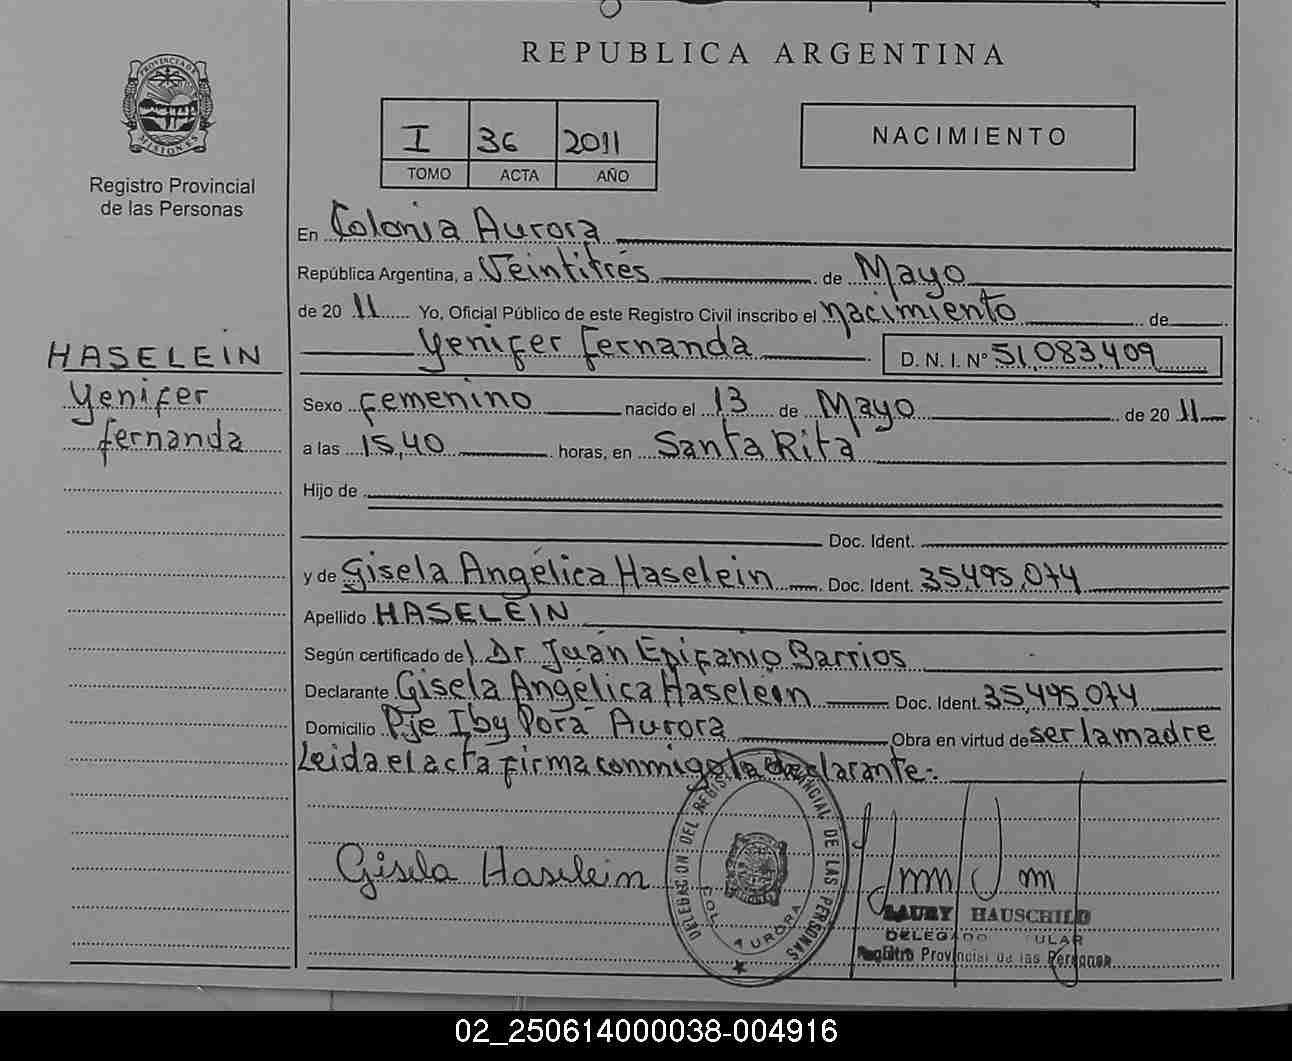 REPUBLICA ARGENTINA
PROVINCIA DE MISIONES
Registro Provincial
de las Personas
I 36 2011
TOMO ACTA AÑO
NACIMIENTO
En Colonia Aurora
República Argentina, a Veintitrés de Mayo
de 20 11 Yo, Oficial Público de este Registro Civil inscribo el nacimiento de
HASELEIN
Yenifer
Fernanda
Yenifer Fernanda D. N. I. Nº 51,083,409
Sexo femenino nacido el 13 de Mayo de 20 11
a las 15,40 horas, en Santa Rita
Hijo de
Doc. Ident.
y de Gisela Angélica Haselein Doc. Ident. 35495,074
Apellido HASELEIN
Según certificado del Dr Juán Epifanio Barrios
Declarante Gisela Angélica Haselein Doc. Ident. 35,495,074
Domicilio Pje Iby Porá Aurora Obra en virtud de ser la madre
Leida el acta firma conmigo la declarante.-
Gisela Haselein
DELEGACION DEL REGISTRO PROVINCIAL DE LAS PERSONAS
COL. AURORA
LAURY HAUSCHILD
DELEGADO TITULAR
Registro Provincial de las Personas
02_250614000038-004916